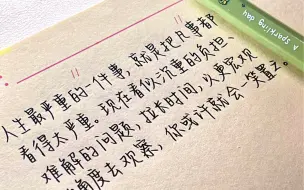 人生最严重的一件事，就是把凡事都
看得太严重。现在看似沉重的负担、
难解的问题，拉长时间，以更宏观
角度去观察，你或许就会一笑置之。
A sparking day